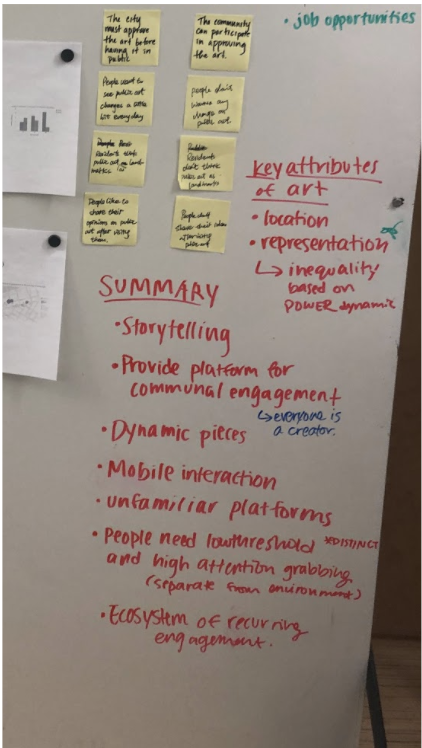 The city
must approve
the art before
having it in
public
The community
can participate
in approving
the art.
• job opportunities
People want to
see public art
changes a little
bit every day
people don't
changes on
public art.
Residents
public art
Residents
don't think
art as
landmarks
People like to
share their
opinions on public
art after seeing
them.
People don't
share their
key attributes
of art
• location
• representation
↳ inequality
based on
POWER dynamic
SUMMARY
• Storytelling
• Provide platform for
communal engagement
↳ everyone is
a creator.
• Dynamic pieces
• Mobile interaction
• unfamiliar platforms
• People need low threshold *DISTINCT
and high attention grabbing
(separate from environment)
• Ecosystem of recurring
engagement.